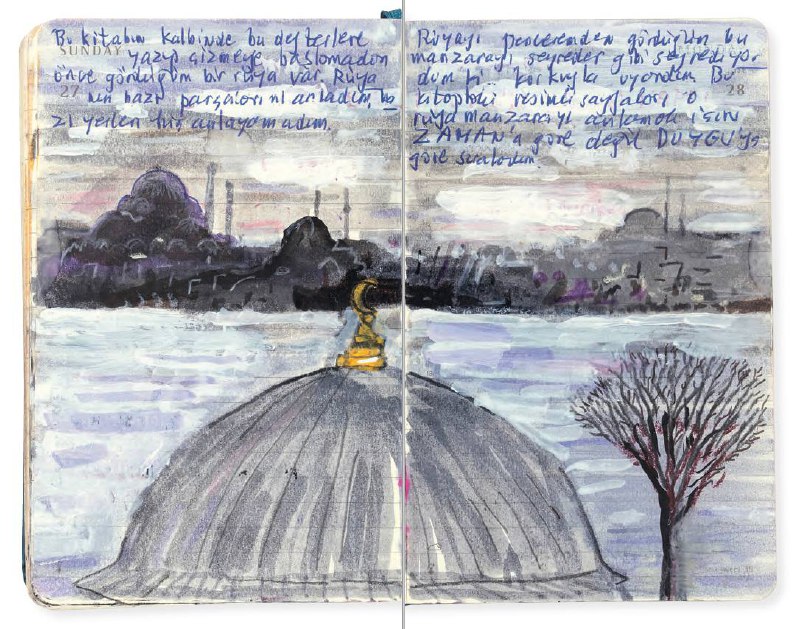 Bu kitabın kalbinde bu defterlere
SUNDAY yazıp çizmeye başlamadan
önce gördüğüm bir rüya var. Rüya
27 nın bazı parçalarını anladım, ba
zı yerleri hiç anlayamadım.
Rüyayı penceremden gördüğüm bu
manzarayı seyreder gibi seyrediyor
dum ki.. korkuyla uyandım. Bu
kitaptaki resimli sayfaları o 28
rüya manzarayı anlamak için
ZAMAN'a göre değil DUYGU'ya
göre sıraladım.